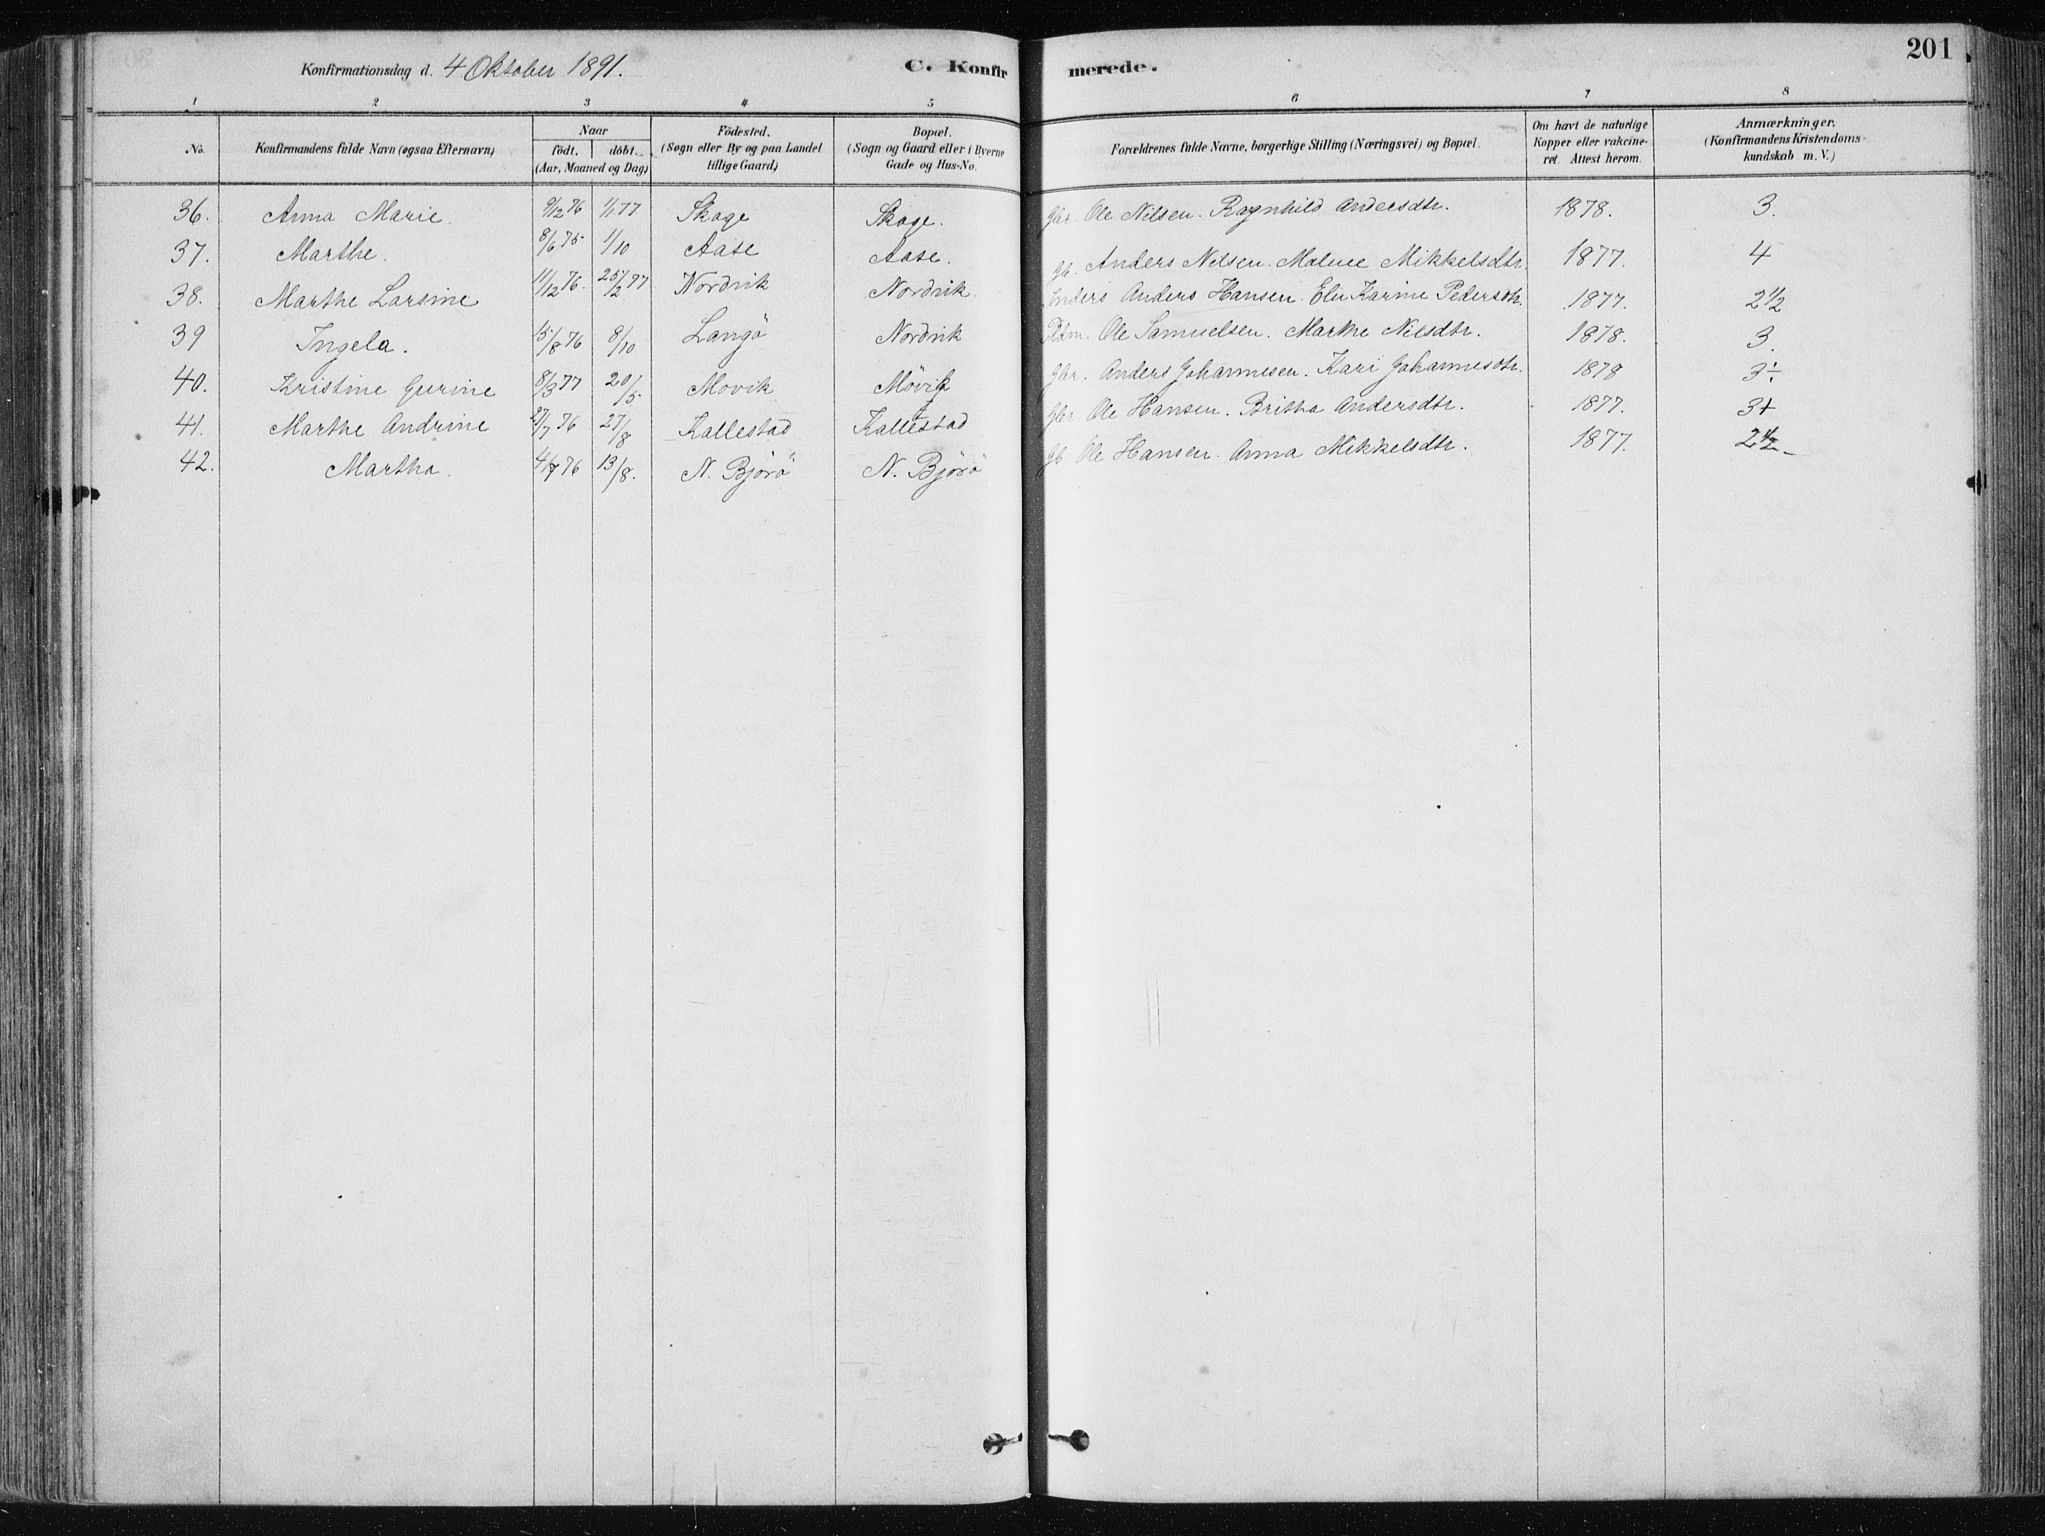 201
Konfirmationsdag d. 4 Oktober 1891. C. Konfirmerede.
1 2 3 4 5 6 7 8
No. Konfirmandens fulde Navn (ogsaa Efternavn) Naar födt. döbt. (Aar, Maaned og Dag) Födested. (Sogn eller By og paa Landet tillige Gaard) Bopæl. (Sogn og Gaard eller i Byerne Gade og Hus-No. Forældrenes fulde Navne, borgerlige Stilling (Næringsvei) og Bopæl. Om havt de naturlige Kopper eller vakcineret. Attest herom. Anmærkninger. (Konfirmandens Kristendomskundskab m. V.)
36. Anna Marie. 9/12 76 1/1 77 Skage Skage. Gbr. Ole Nilsen. Ragnhild Andersdtr. 1878. 3.
37. Marthe. 8/6 75 1/10 Aase Aase. Gb. Anders Nilsen. Mikkelsdtr. 1877. 4
38. Marthe Larsine 11/12 76. 25/2 77 Nordvik Nordvik. Inders Anders Hansen. Eli Karine Pedersdtr. 1877. 2 1/2
39 Ingela. 15/8 76 8/10 Langö Nordvik Pldm. Ole Samuelsen. Marthe Nilsdtr. 1878. 3.
40. Kristine Gurine 8/3 77 20/5 Movik Mövik Gbr. Anders Johannesen. Kari Johannesdtr. 1878 3÷
41. Marthe Andrine 27/7 76 27/8 Kallestad Kallestad Gbr Ole Hansen. Britha Andersdtr. 1877. 3+
42. Martha. 4/7 76 13/8. N. Björö N. Björö Gb. Ole Hansen. Anna Mikkelsdtr. 1877. 2 1/2